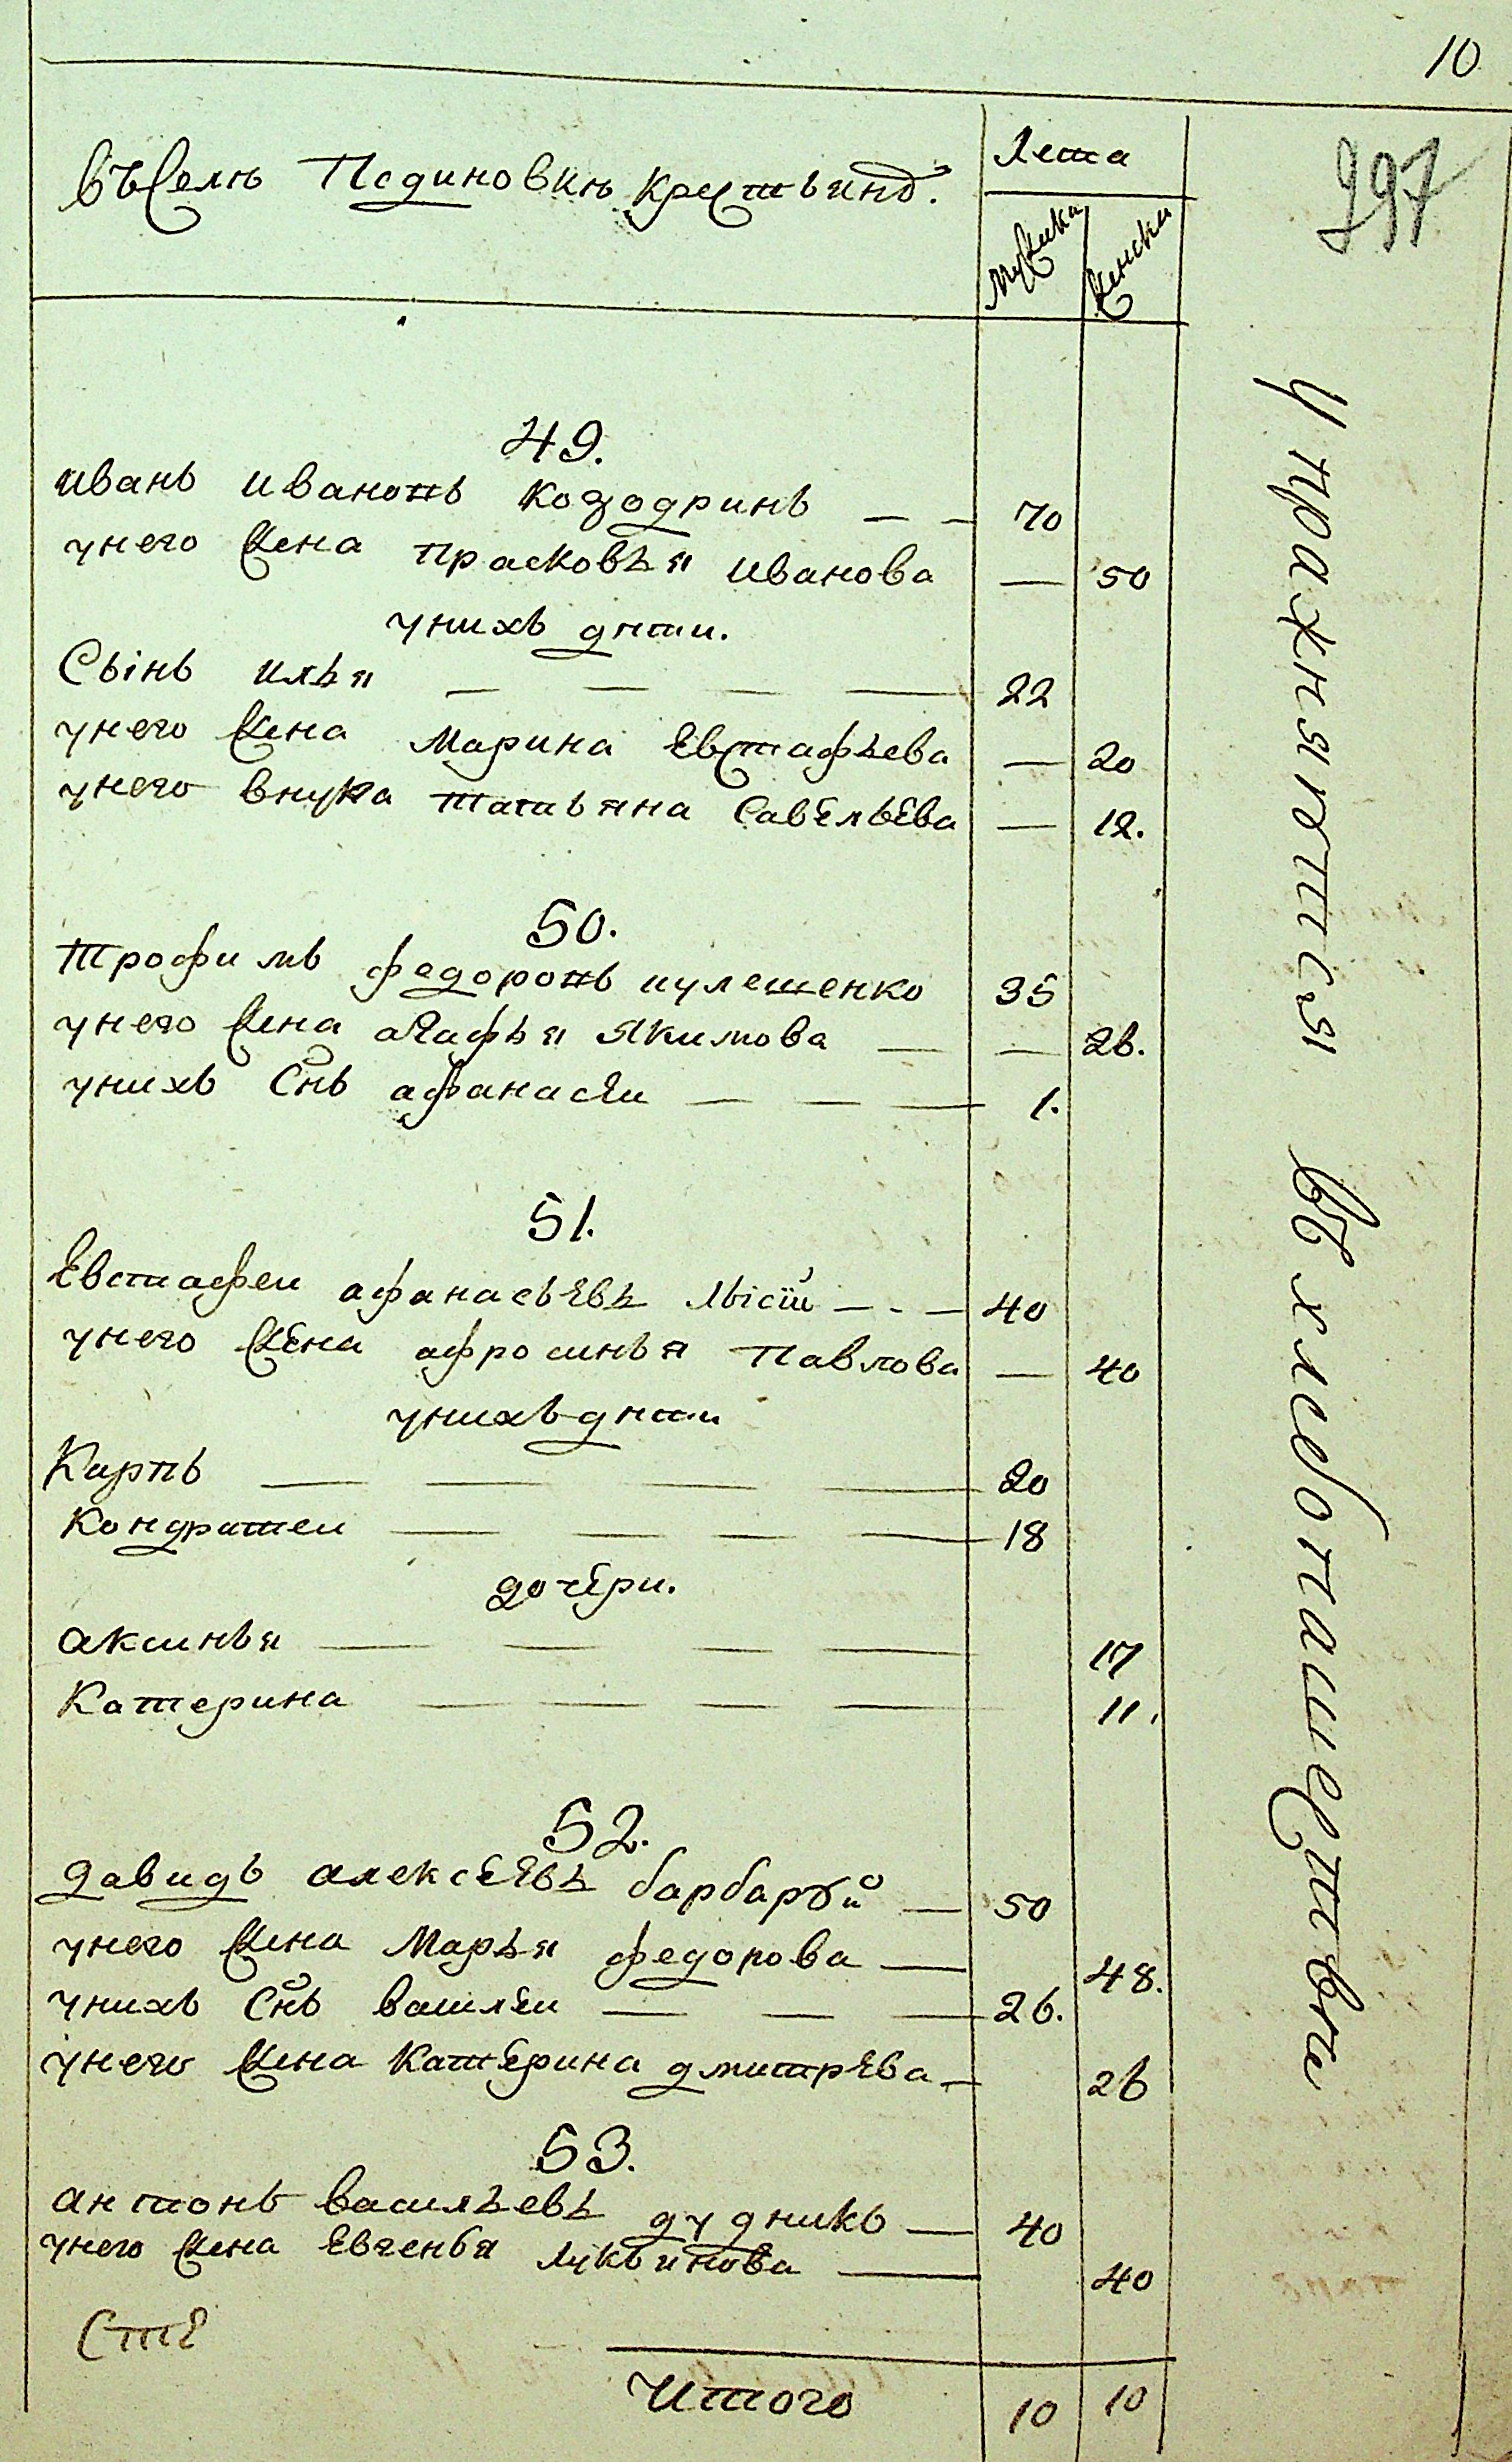 10
297
въ селѣ Пединовкѣ крестьянъ.
Лета
Мужска
Женска
49.
иванъ ивановъ козодринъ — — 70
унего жена прасковья иванова — 50
унихъ дѣти.
Сынъ илья — — — — 22
унего жена Марина Евстафьева — 20
унего внука татьяна Савельева — 12.
50.
трофимъ федоровъ кулешенко 35
унего жена агафья Якимова — — 26.
унихъ Снъ афанасеи — — — 1.
51.
Евстафеи афанасьевъ лысій — - — 40
унего жена афросинья Павлова — 40
унихъ дѣти
Карпъ — — — — 20
Кондратеи — — — — 18
дочери.
аксинья — — — — 17
Катерина — — — — 11.
52.
давидъ алексеевъ барбарой — 50
унего жена Марья федорова — 48.
унихъ Снъ василеи — — — 26.
унего жена Катерина дмитрева — 26
53.
антонъ васильевъ дудникъ — 40
унего жена Евгенья лукьянова — 40
Итого 10 10
упражняются въ хлебопашестве